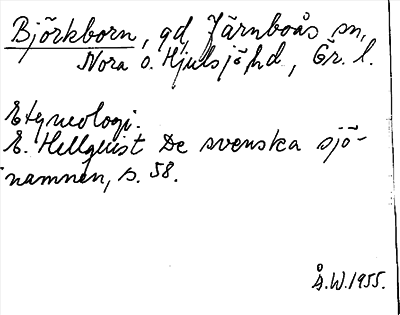 Björkborn, gd, Järnboås sn,
Nora o. Hjulsjö hd, Ör. l.
Etymologi.
E. Hellquist De svenska sjö-
namnen, s. 58.
Å.W. 1955.